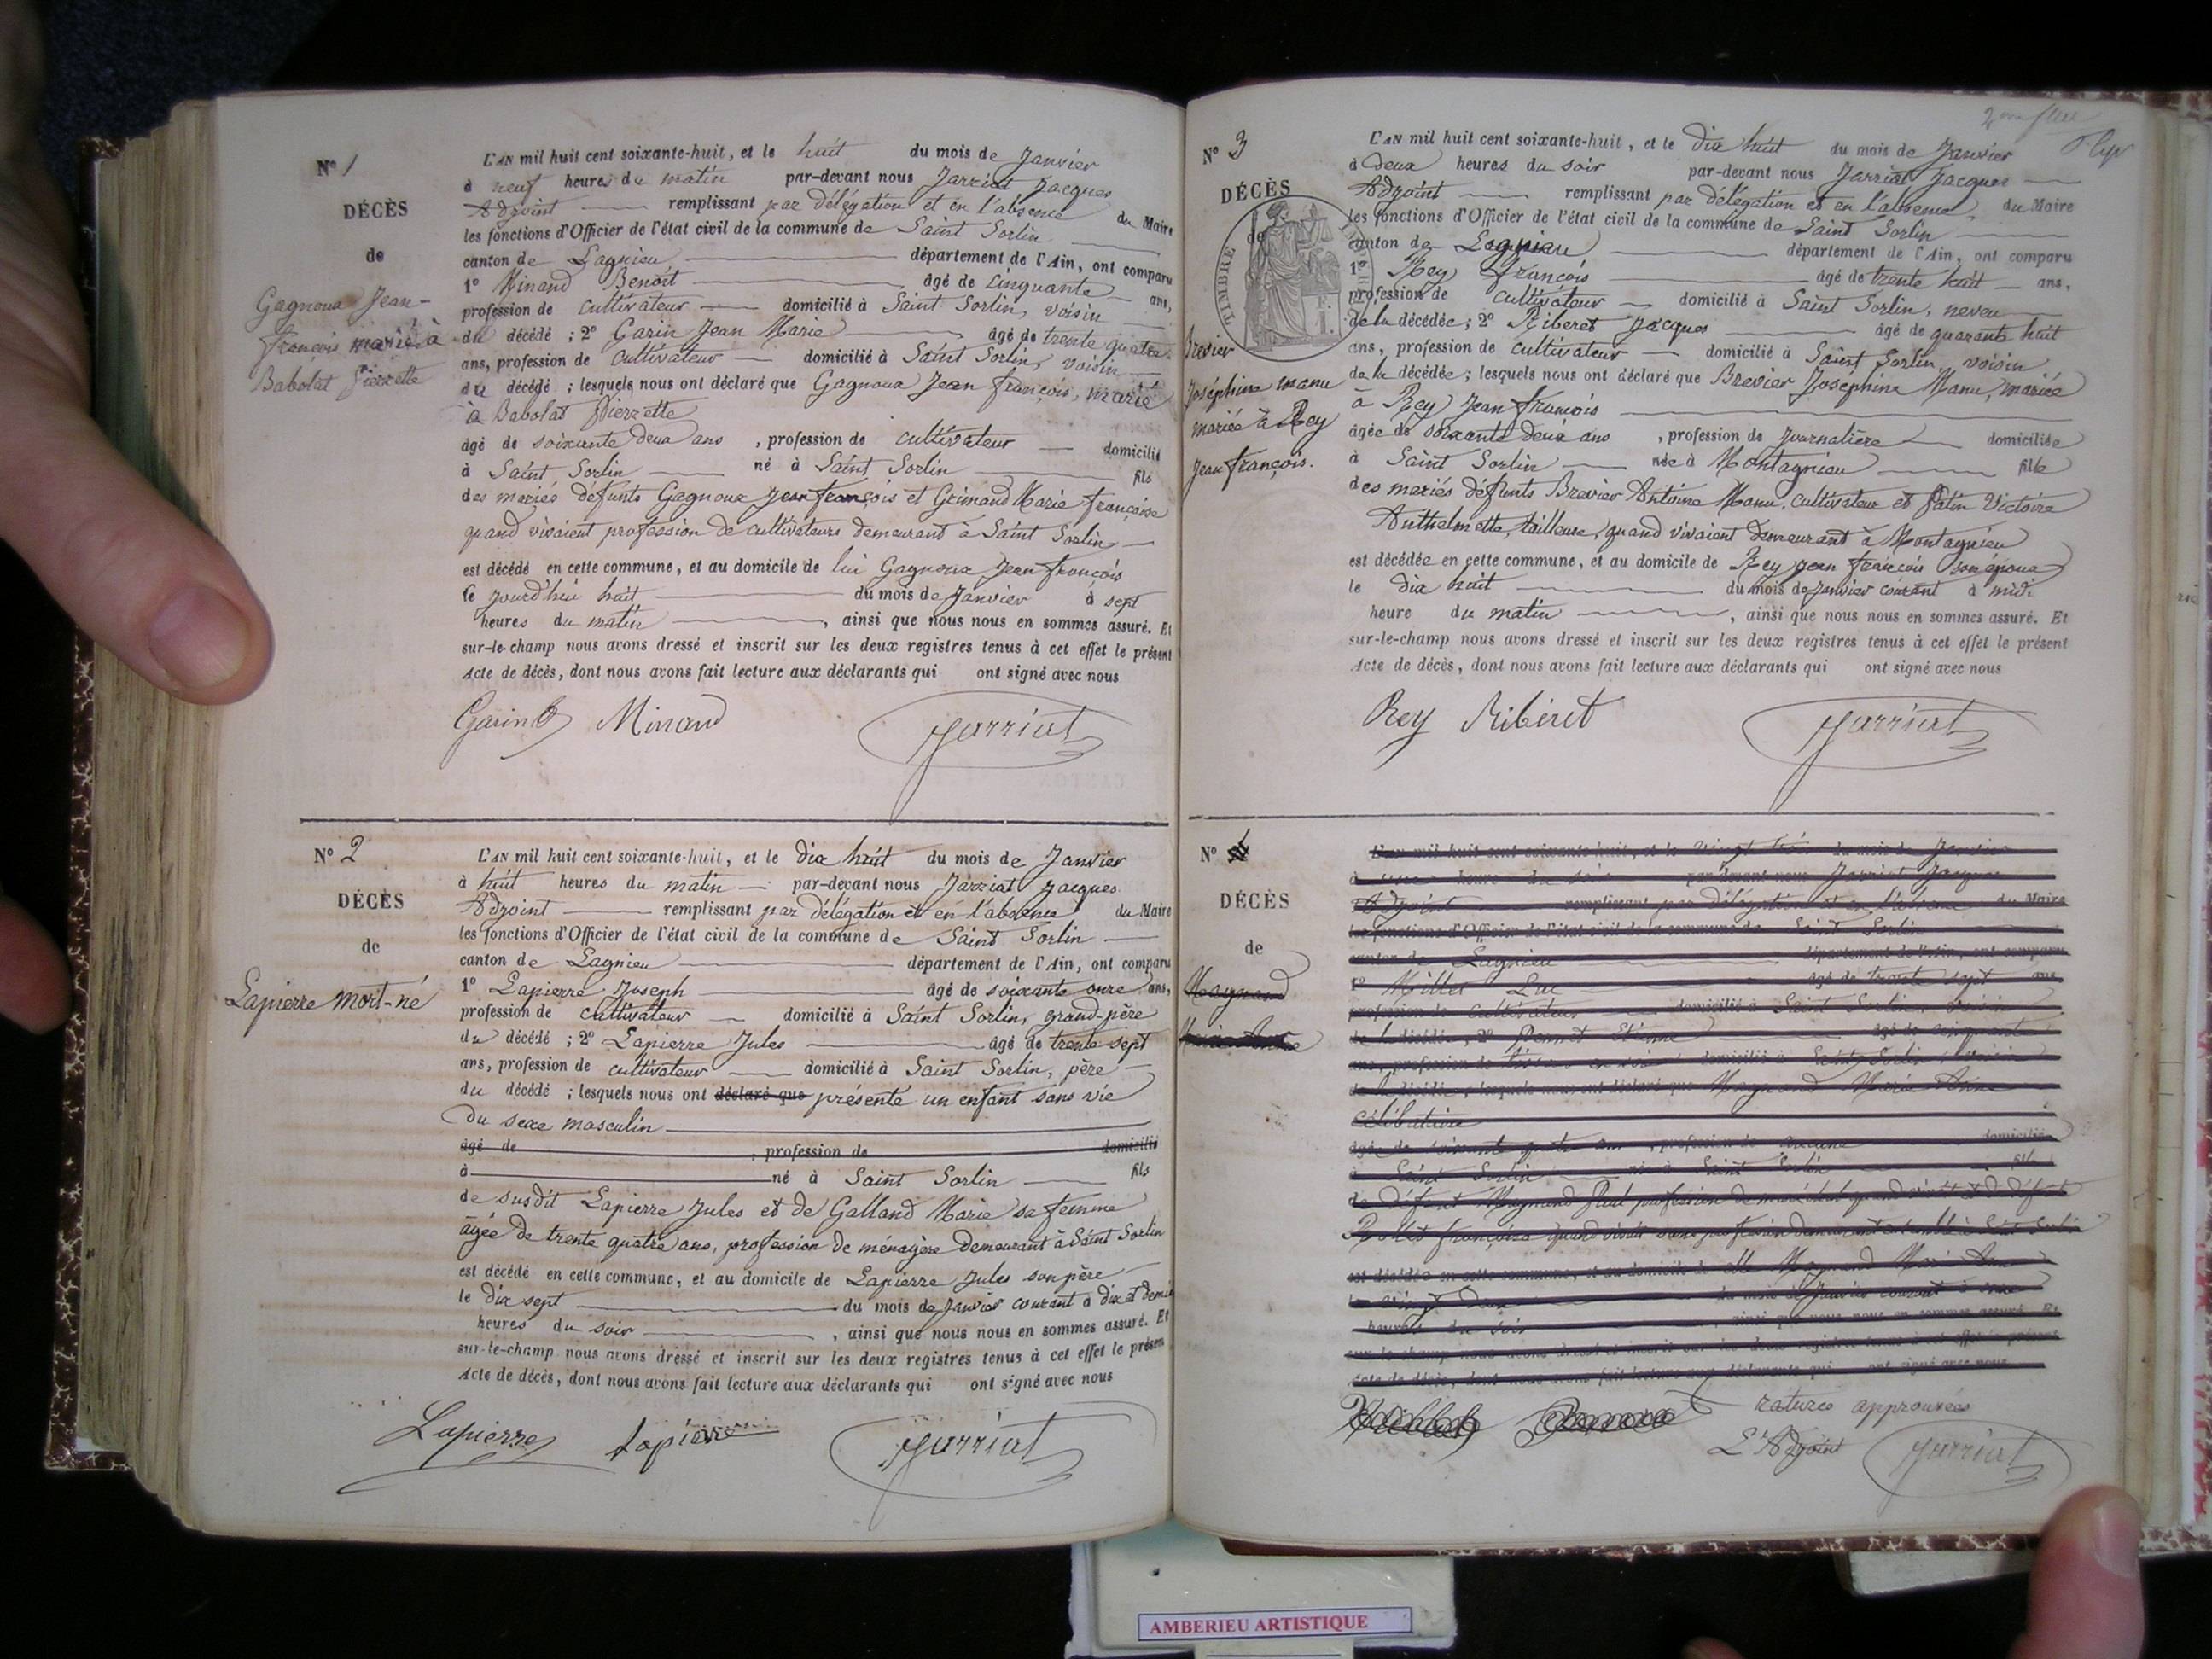 N° 1
DÉCÈS
de
Gagnoux Jean-
François marié à
Babolat Pierrette
L'AN mil huit cent soixante-huit, et le huit du mois de Janvier
à neuf heures du matin par-devant nous Jarriat Jacques
Adjoint remplissant par délégation et en l'absence du Maire
les fonctions d'Officier de l'état civil de la commune de Saint Sorlin
canton de Lagnieu département de l'Ain, ont comparu
1° Minand Benoît âgé de Cinquante ans,
profession de cultivateur domicilié à Saint Sorlin, voisin
du décédé ; 2° Garin Jean Marie âgé de trente quatre
ans, profession de cultivateur domicilié à Saint Sorlin, voisin
du décédé ; lesquels nous ont déclaré que Gagnoux Jean françois, marié
à Babolat Pierrette
âgé de soixante deux ans , profession de cultivateur domicilié
à Saint Sorlin né à Saint Sorlin fils
des mariés défunts Gagnoux Jean françois et Grimand Marie françoise
quand vivaient profession de cultivateurs demeurant à Saint Sorlin
est décédé en cette commune, et au domicile de lui Gagnoux Jean françois
le jourd'hui huit du mois de Janvier à sept
heures du matin , ainsi que nous nous en sommes assuré. Et
sur-le-champ nous avons dressé et inscrit sur les deux registres tenus à cet effet le présent
Acte de décès, dont nous avons fait lecture aux déclarants qui ont signé avec nous
Garin Minand Jarriat
N° 2
DÉCÈS
de
Lapierre mort-né
L'AN mil huit cent soixante-huit, et le dix huit du mois de Janvier
à huit heures du matin par-devant nous Jarriat Jacques
Adjoint remplissant par délégation et en l'absence du Maire
les fonctions d'Officier de l'état civil de la commune de Saint Sorlin
canton de Lagnieu département de l'Ain, ont comparu
1° Lapierre Joseph âgé de soixante onze ans,
profession de cultivateur domicilié à Saint Sorlin, grand-père
du décédé ; 2° Lapierre Jules âgé de trente sept
ans, profession de cultivateur domicilié à Saint Sorlin, père
du décédé ; lesquels nous ont déclaré que présenté un enfant sans vie
du sexe masculin
âgé de , profession de domicilié
à né à Saint Sorlin fils
de susdit Lapierre Jules et de Galland Marie sa femme
âgée de trente quatre ans, profession de ménagère demeurant à Saint Sorlin
est décédé en cette commune, et au domicile de Lapierre Jules son père
le dix sept du mois de Janvier courant à dix et demie
heures du soir , ainsi que nous nous en sommes assuré. Et
sur-le-champ nous avons dressé et inscrit sur les deux registres tenus à cet effet le présen
Acte de décès, dont nous avons fait lecture aux déclarants qui ont signé avec nous
Lapierre Lapierre Jarriat
N° 3
DÉCÈS
de
TIMBRE
Brevier
Joséphine manu
mariée à Rey
Jean françois.
L'AN mil huit cent soixante-huit, et le dix huit du mois de Janvier
à deux heures du soir par-devant nous Jarriat Jacques
Adjoint remplissant par délégation et en l'absence du Maire
les fonctions d'Officier de l'état civil de la commune de Saint Sorlin
canton de Lagnieu département de l'Ain, ont comparu
1° Rey François âgé de trente huit ans,
profession de cultivateur domicilié à Saint Sorlin, neveu
de la décédée ; 2° Riberet Jacques âgé de quarante huit
ans, profession de cultivateur domicilié à Saint Sorlin, voisin
de la décédée ; lesquels nous ont déclaré que Brevier Joséphine Manu, mariée
à Rey Jean françois
âgée de soixante deux ans , profession de Journalière domiciliée
à Saint Sorlin née à Montagnieu fille
des mariés défunts Brevier Antoine Manu, cultivateur et Patin Victoire
Anthelmette, tailleuse, quand vivaient demeurant à Montagnieu
est décédée en cette commune, et au domicile de Rey Jean françois son époux
le dix huit du mois de Janvier courant à midi
heure du matin , ainsi que nous nous en sommes assuré. Et
sur-le-champ nous avons dressé et inscrit sur les deux registres tenus à cet effet le présent
Acte de décès, dont nous avons fait lecture aux déclarants qui ont signé avec nous
Rey Riberet Jarriat
N° 4
DÉCÈS
de
Maynand
Marie Anne
L'an mil huit cent soixante-huit, et le vingt du mois de Janvier
à heure du soir par-devant nous Jarriat Jacques
Adjoint remplissant par délégation et en l'absence du Maire
les fonctions d'Officier de l'état civil de la commune de Saint Sorlin
canton de Lagnieu département de l'Ain, ont comparu
1° Millet Luc âgé de trente sept ans
profession de cultivateur domicilié à Saint Sorlin, voisin
célibataire
ratures approuvées
L'Adjoint Jarriat
AMBERIEU ARTISTIQUE